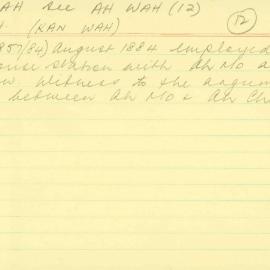 AH See AH WAH (12)
(KAN WAH) 12
957/84) August 1884 employed
station with Ah Mo a
witness to the argum
between Ah Mo & Ah Ch